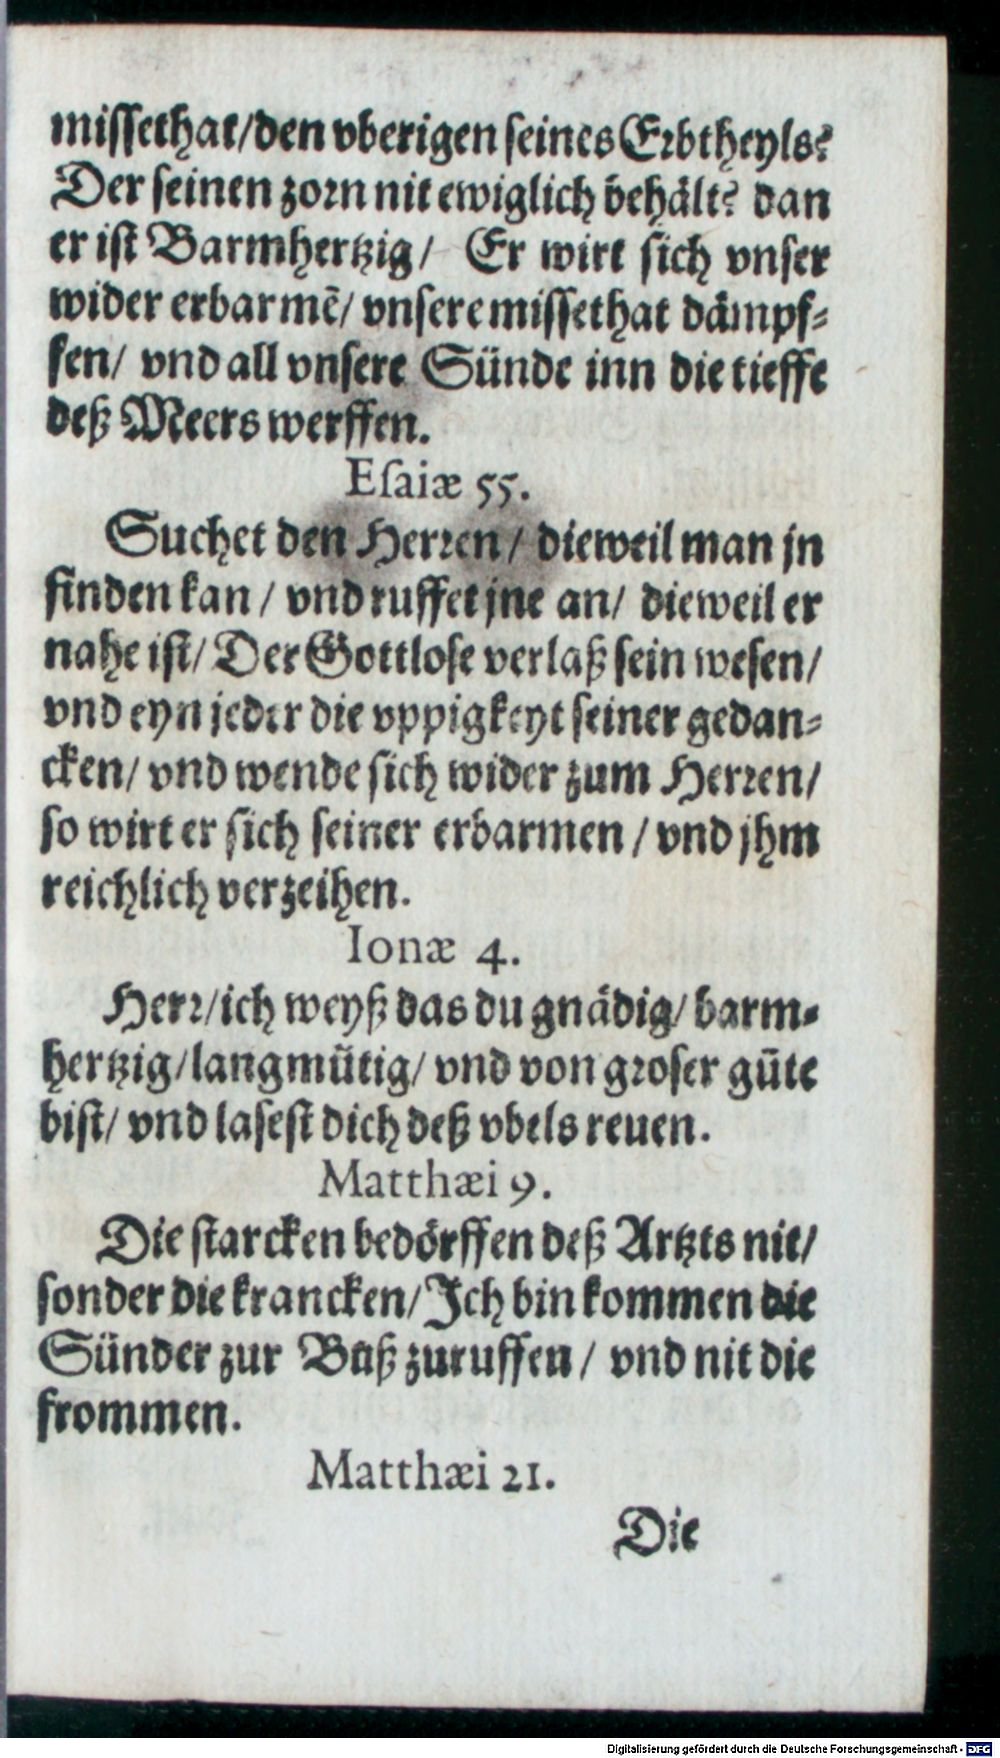 missethat/den vberigen seines Erbtheyls?
Der seinen zorn nit ewiglich behält? dan
er ist Barmhertzig/ Er wirt sich vnser
wider erbarmē/ vnsere missethat dämpf⸗
fen/ vnd all vnsere Sünde inn die tieffe
deß Meers werffen.
Eſaiæ 55.
Suchet den Herren/ dieweil man jn
finden kan/ vnd ruffet jne an/ dieweil er
nahe ist/ Der Gottlose verlaß sein wesen/
vnd eyn jeder die vppigkeyt seiner gedan⸗
cken/ vnd wende sich wider zum Herren/
so wirt er sich seiner erbarmen/ vnd jhm
reichlich verzeihen.
Ionæ 4.
Herr/ich weyß das du gnädig/ barm⸗
hertzig/langmütig/ vnd von groser güte
bist/ vnd lasest dich deß vbels reuen.
Matthæi 9.
Die starcken bedörffen deß Artzts nit/
sonder die krancken/Ich bin kommen die
Sünder zur Buß zuruffen/ vnd nit die
frommen.
Matthæi 21.
Die
Digitalisierung gefördert durch die Deutsche Forschungsgemeinschaft - DFG